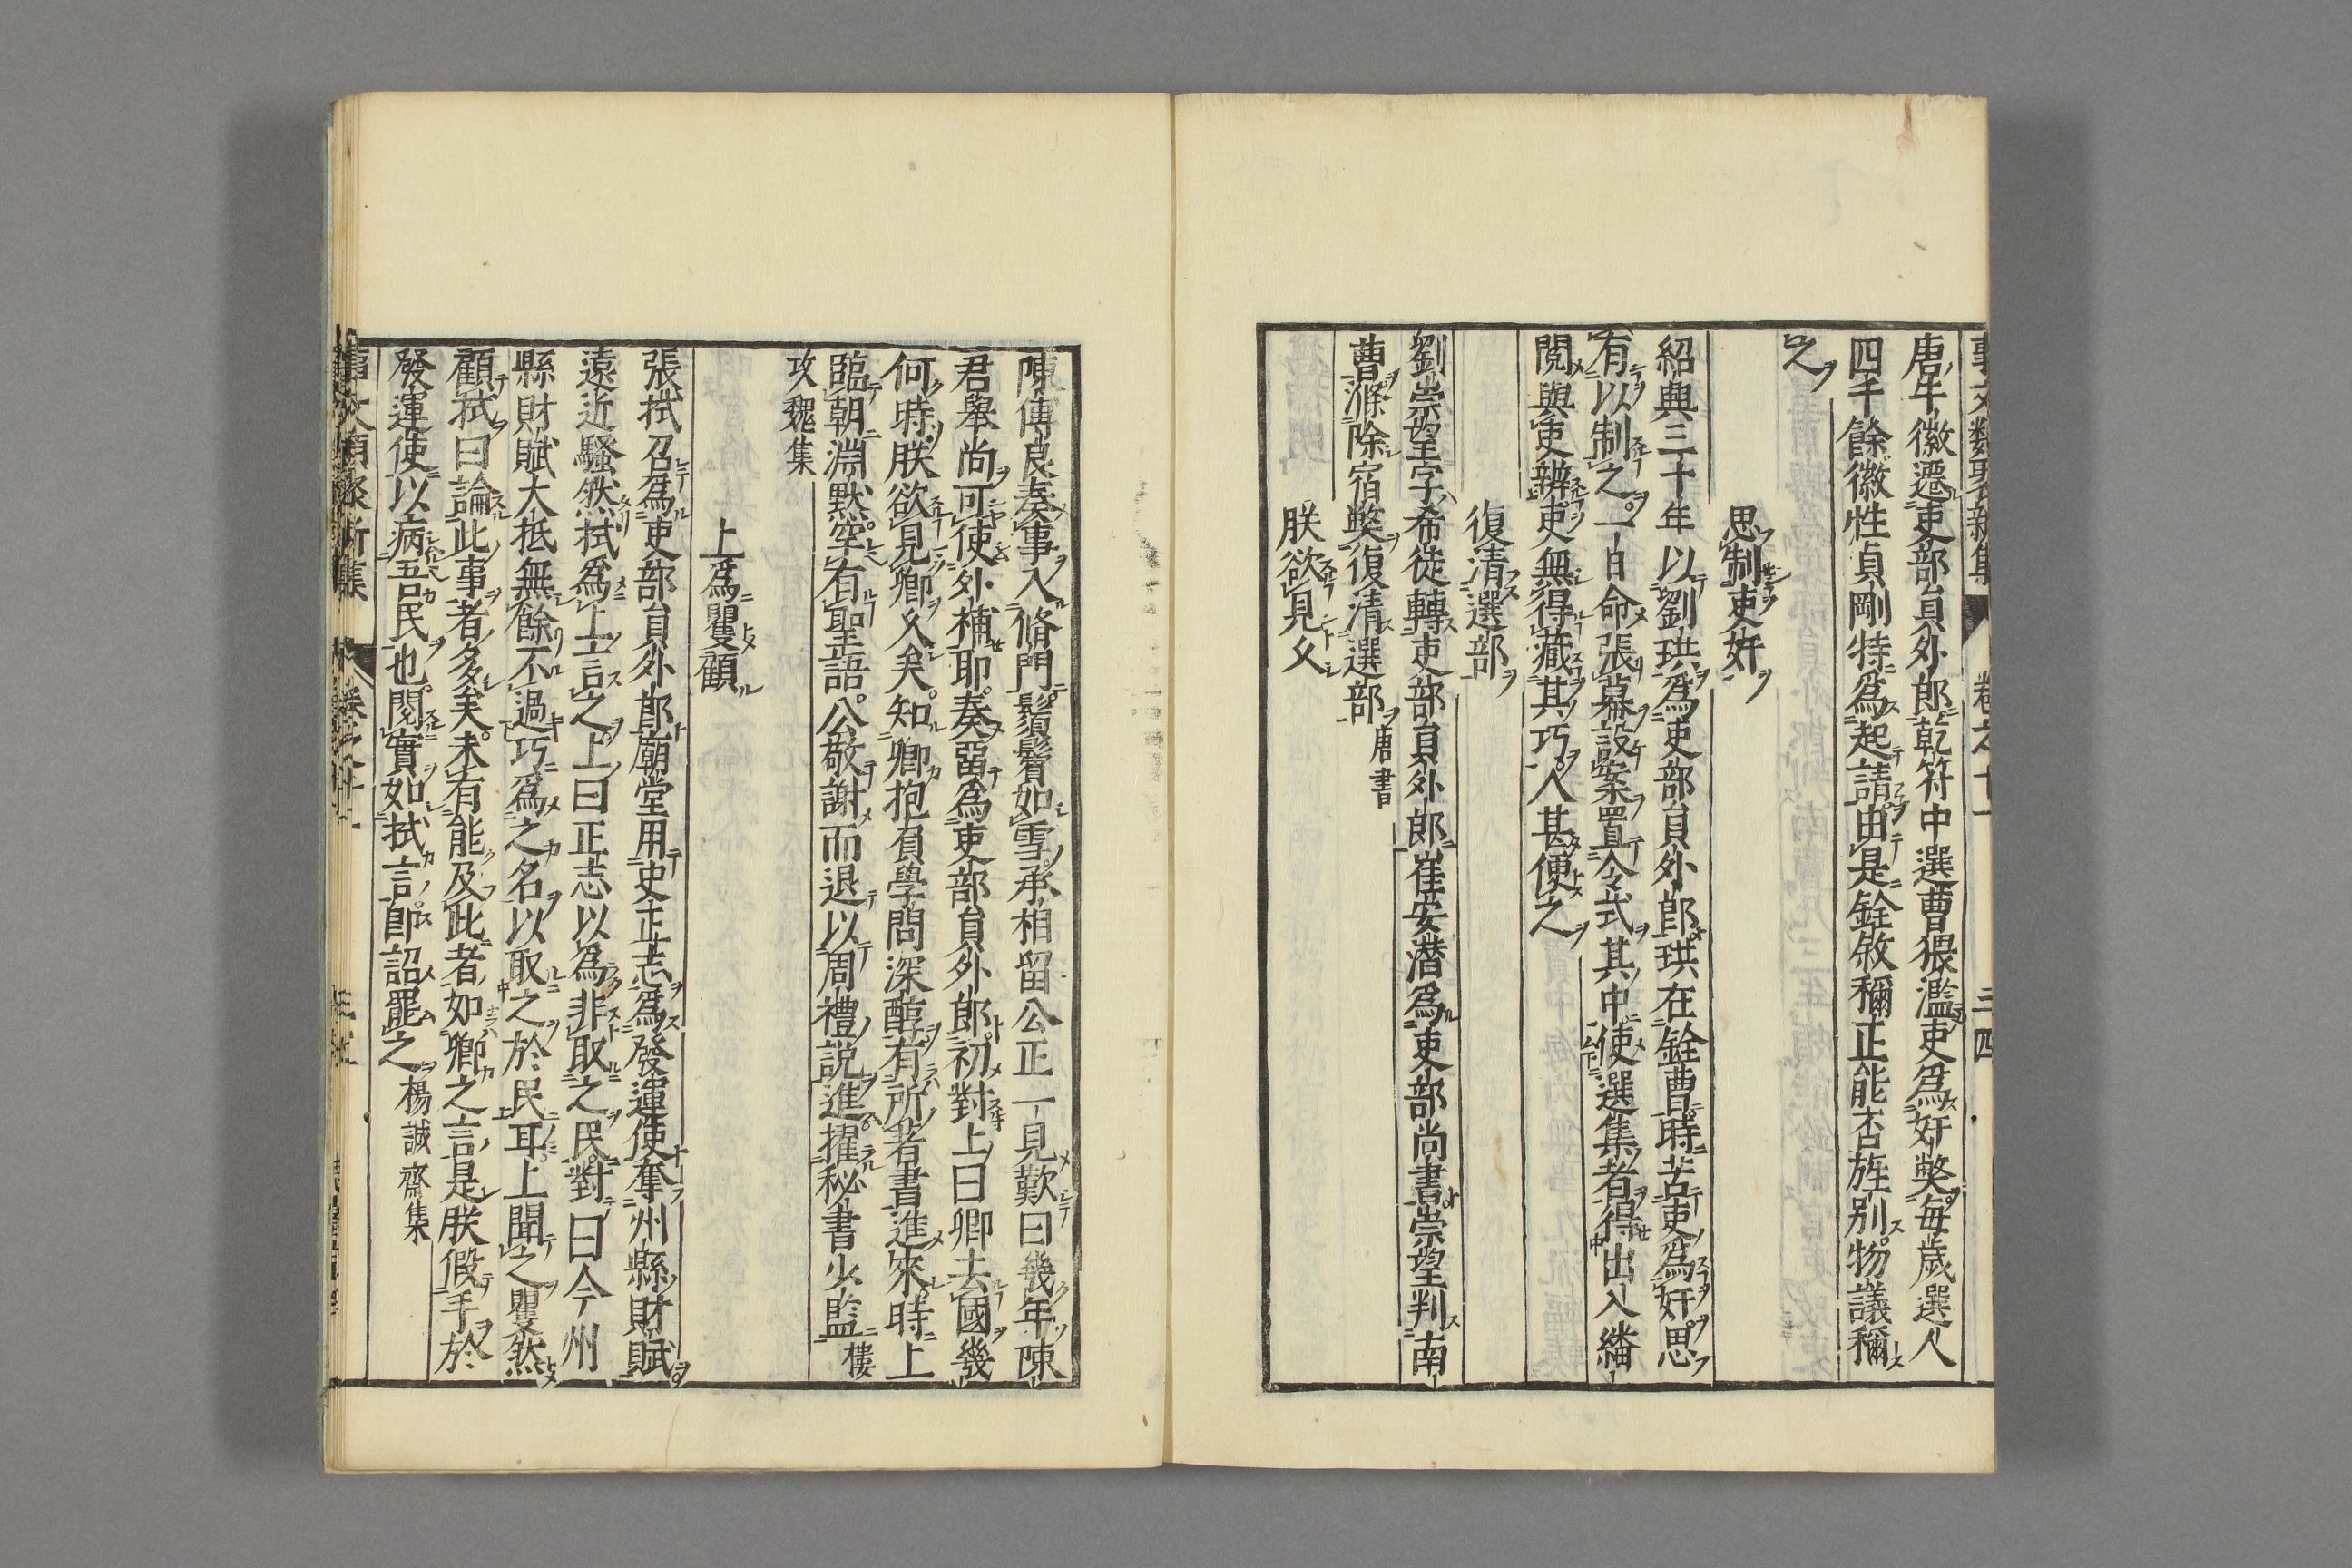 唐牛徽遷吏部員外郎乾符中選曹猥濫吏爲奸獘每歲選人
四千餘徽性貞剛特爲起請由是銓敘稱正能否旌别物議稱
之
思制吏奸
紹興三十年以劉珙爲吏部員外郎珙在銓曹時苦吏爲奸思
有以制之一日命張幕設案置令式其中使選集者得出入繙
閱與吏辨吏無得藏其巧人甚便之
復清選部
劉崇望字希徒轉吏部員外郎崔安潛爲吏部尚書崇望判南
曹滌除宿獘復清選部唐書
朕欲見久
陳傅良奏事入脩門鬚鬢如雪丞相留公正一見歎曰幾年陳
君舉尚可使外補耶奏留爲吏部員外郎初對上曰卿去國幾
何時朕欲見卿久矣知卿抱負學問深醇有所著書進來時上
臨朝淵默空有聖語公敬謝而退以周禮説進擢秘書少監樓
攻魏集
上爲矍顧
張拭召爲吏部員外郎廟堂用史正志爲發運使奪州縣財賦
遠近騷然拭爲上言之上曰正志以爲非取之民對曰今州
縣財賦大抵無餘不過巧爲之名以取之於民耳上聞之矍然
顧拭曰論此事者多矣未有能及此者如卿之言是朕假手於
發運使以病吾民也閱實如拭言即詔罷之楊誠齋集